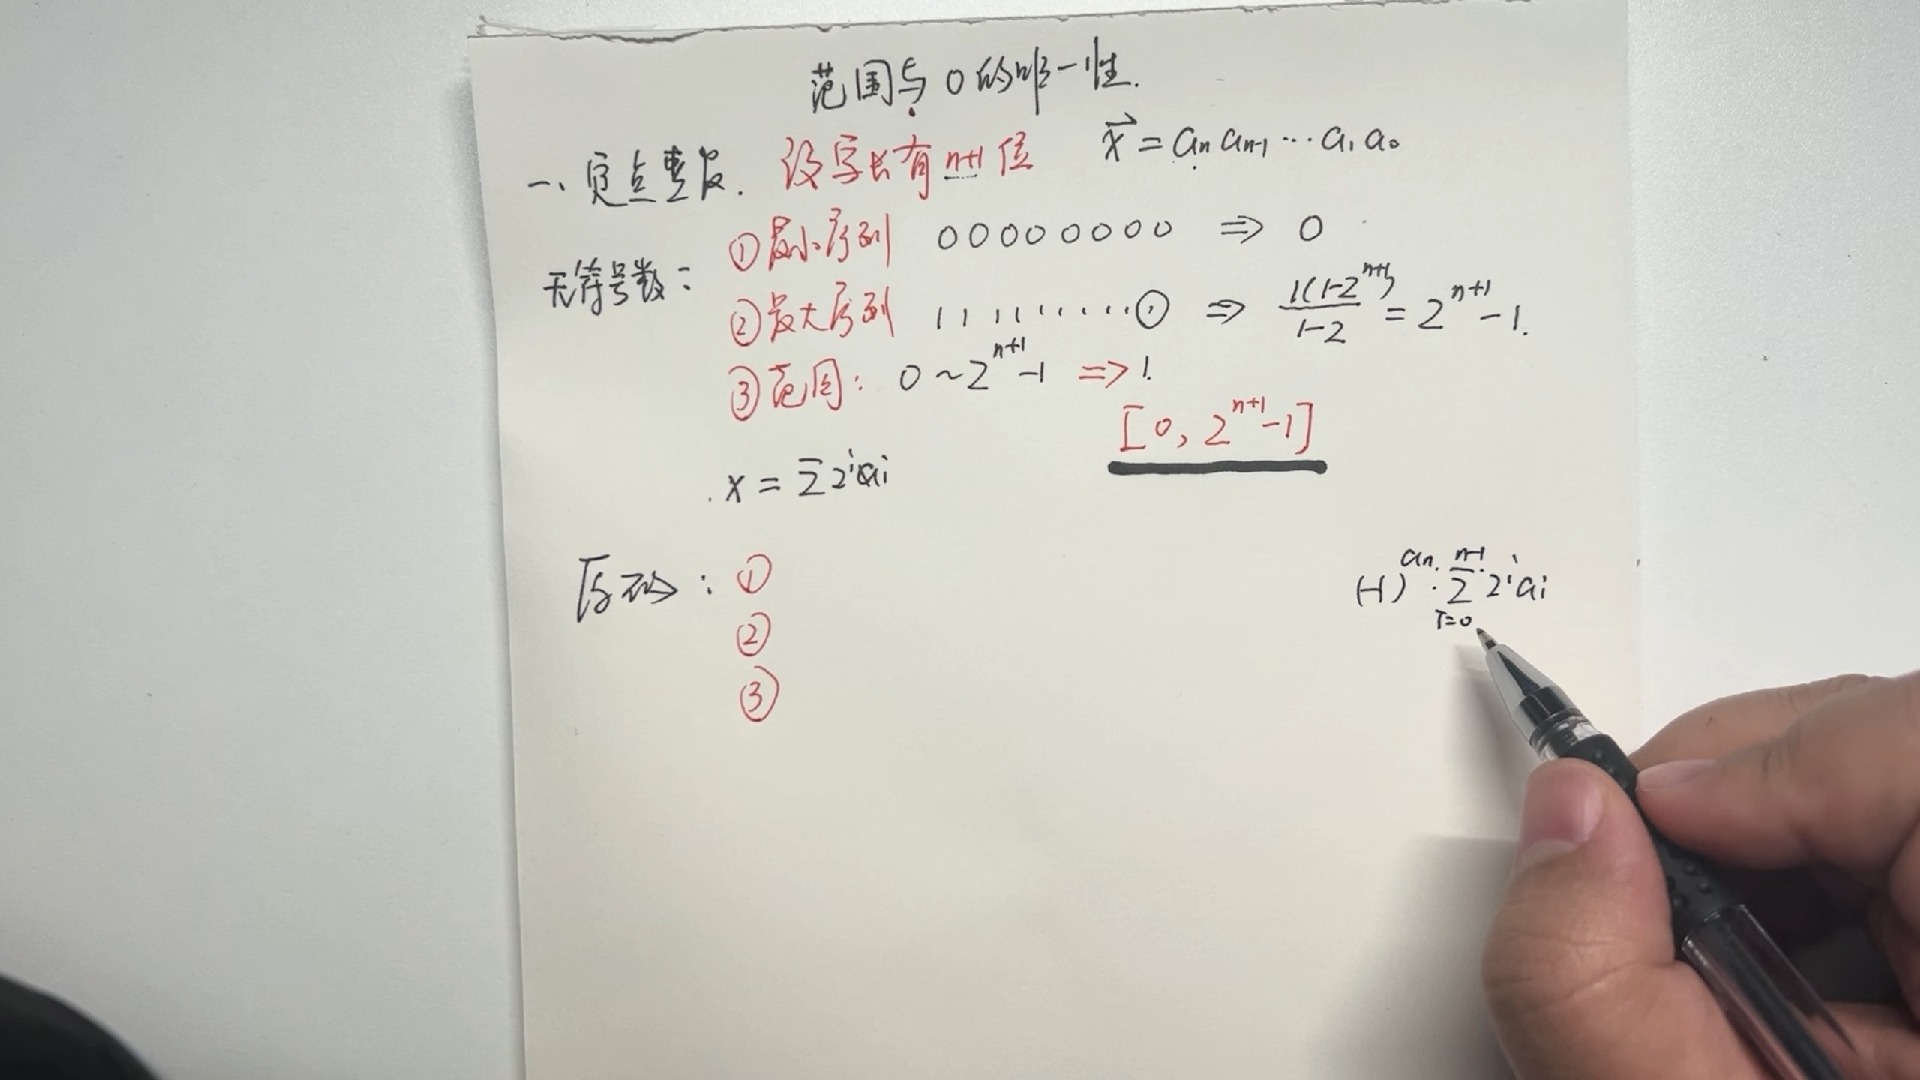 范围与0的唯一性.
一、定点整数. 设字长有n+1位 x⃗ = aₙ aₙ₋₁ ⋯ a₁ a₀
无符号数:
①最小序列 00000000 ⇒ 0
②最大序列 111111⋯⋯① ⇒ 1(1-2ⁿ⁺¹)/(1-2) = 2ⁿ⁺¹-1.
③范围: 0~2ⁿ⁺¹-1 => 1.
[0, 2ⁿ⁺¹-1]
x = Σ2ⁱaᵢ
原码: ①
②
③
(-1)^aₙ · Σ_{i=0}^{n-1} 2ⁱaᵢ